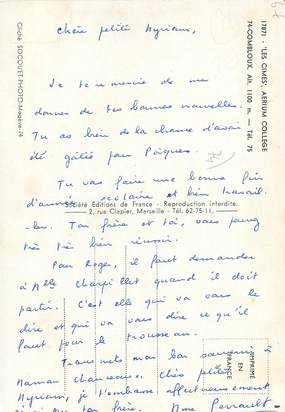 Chère petite Myriam,
Je te remercie de me
donner de tes bonnes nouvelles.
Tu as bien de la chance d'avoir
été gâtée pour Pâques.
Tu vas faire une bonne fin
d'année scolaire et bien travail-
-ler. Ton frère et toi, vous pouvez
très très bien réussir.
Pour Roger, il faut demander
à Mlle Charpillet quand il doit
partir. C'est elle qui va vous le
dire et qui va vous dire ce qu'il
faut pour le trousseau.
Transmets mon bon souvenir à
Maman. Chère petite
Myriam, je t'embrasse affectueusement
ton frère. Mme Perrault
Société Editions de France - Reproduction interdite.
2, rue Clapier, Marseille - Tél. 62-75-11
17871 - "LES CIMES", AERIUM COLLÈGE
74-COMBLOUX, Alt. 1100 m. — Tél. 75
Cliché SOCQUET-PHOTO-Megève-74
IMPRIMÉ
EN
FRANCE